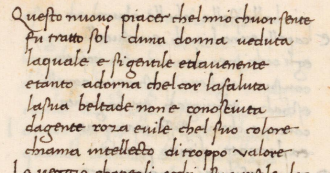 Questo nuovo piacer chel mio chuor sente
fu tratto sol duna donna veduta
laquale e si gentile et lavenente
e tanto adorna chel cor la saluta
la sua beltade non e conosciuta
da gente roza e vile chel suo colore
chiama intellecto di troppo valore